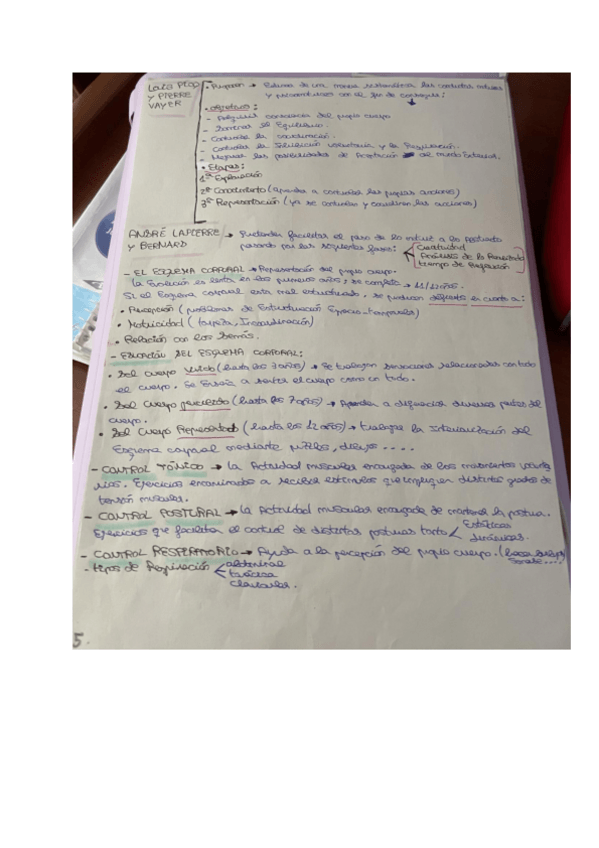 LOUIS PICQ Y PIERRE VAYER
• Proponen → Educar de una manera sistemática las conductas motrices
y psicomotrices con el fin de conseguir:
• Objetivos:
- Adquirir conciencia del propio cuerpo
- Dominar el Equilibrio.
- Controlar la coordinación.
- Controlar la Inhibición voluntaria y la Respiración.
- Mejorar las posibilidades de Adaptación al mundo Exterior.
• Etapas:
1ª Exploración
2ª Conocimiento (aprenden a controlar las propias acciones)
3ª Representación (ya se controlan y coordinan las acciones)
ANDRÉ LAPIERRE Y BERNARD → Pretenden facilitar el paso de lo
pasando por las siguientes fases: Creatividad
Análisis de lo
tiempo de Expresión
- EL ESQUEMA CORPORAL → Representación del propio cuerpo.
La Evolución es lenta en los primeros años, se completa → 11/12 años.
Si el Esquema corporal esta mal estructurado, se producen déficits en cuanto a:
• Percepción (problemas de Estructuración Espacio-temporales)
• Motricidad (torpeza, Incoordinación)
• Relación con los demás.
- Educación DEL ESQUEMA CORPORAL:
• Del cuerpo vivido (hasta los 3 años) → Se trabajan sensaciones relacionadas con todo
el cuerpo. Se Enseña a sentir el cuerpo como un todo.
• Del cuerpo percibido (hasta los 7 años) → Aprenden a diferenciar diversas partes del
cuerpo.
• Del cuerpo Representado (hasta los 12 años) → trabajar la Interiorización del
Esquema corporal mediante puzles, dibujos ....
- CONTROL TÓNICO → la Actividad muscular encargada de los movimientos volunta
rios. Ejercicios encaminados a recibir estímulos que impliquen distintos grados de
tensión muscular.
- CONTROL POSTURAL → la Actividad muscular encargada de mantener la postura.
Ejercicios que facilitan el control de distintas posturas tanto Estáticas
dinámicas.
- CONTROL RESPIRATORIO → Ayuda a la percepción del propio cuerpo.
- tipos de Respiración abdominal
torácica
clavicular.
5.